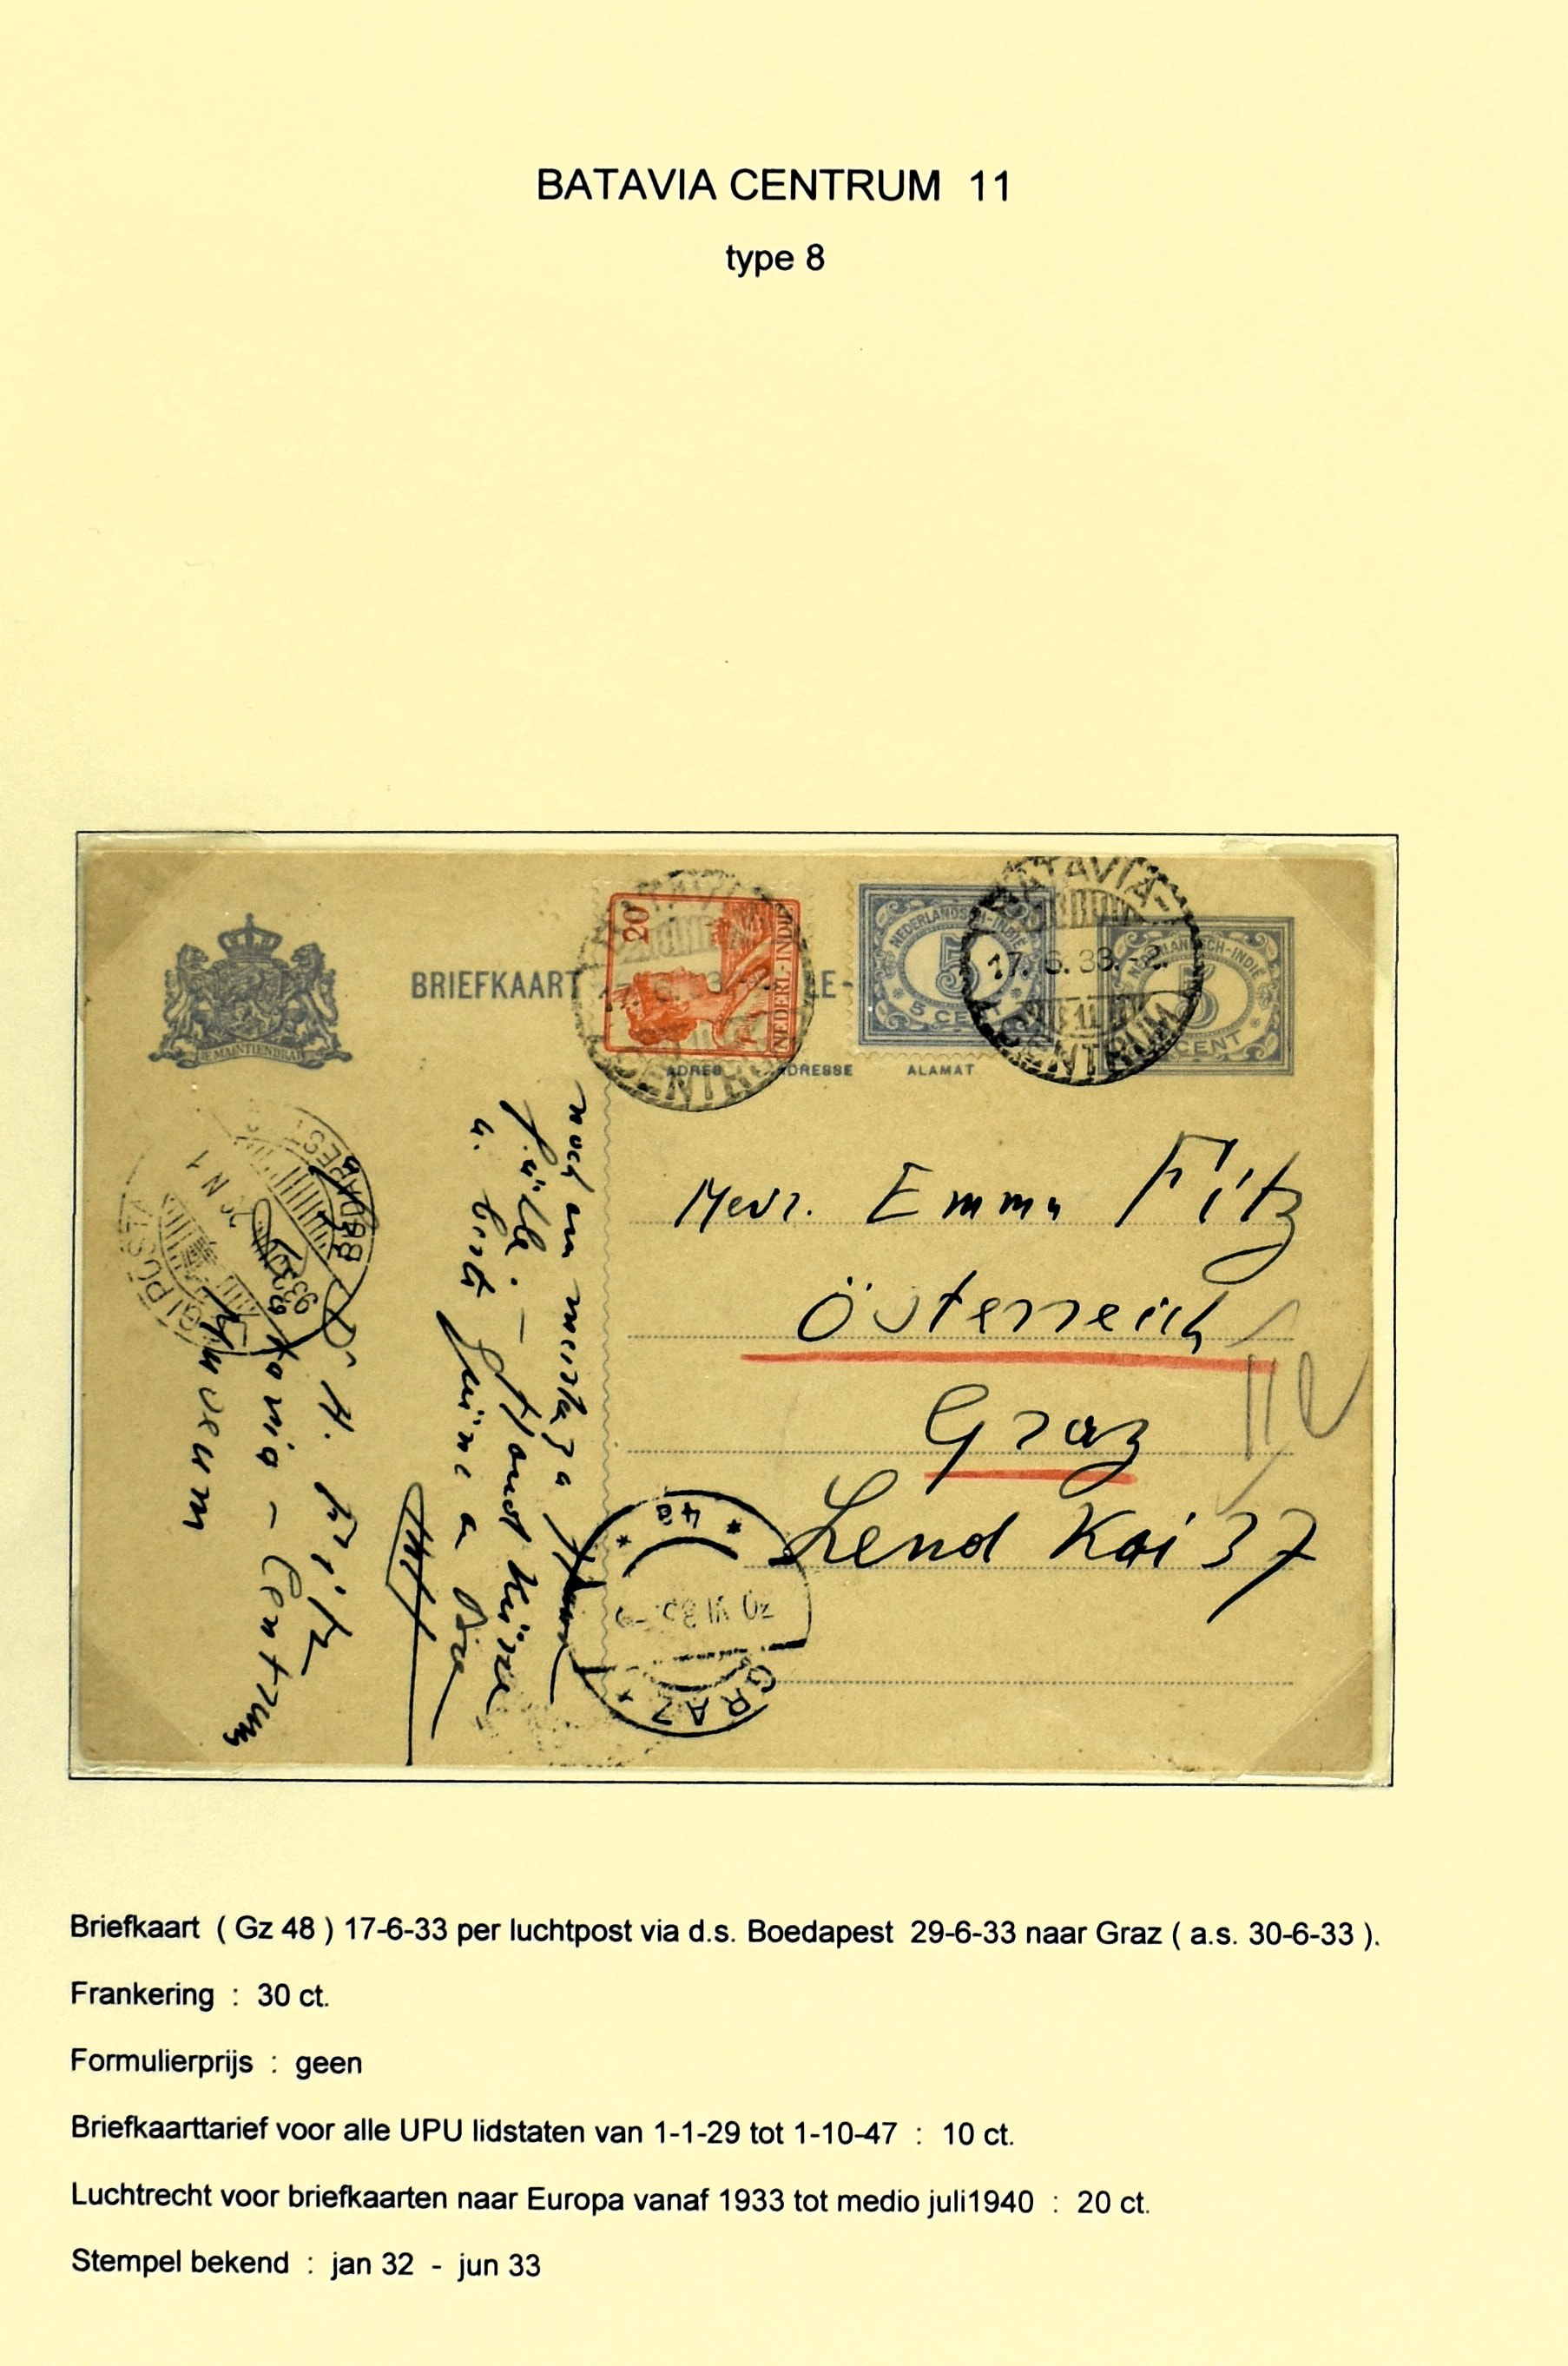 BATAVIA CENTRUM 11
type 8
JE MAINTIENDRAI
BRIEFKAART
LE-
20
NEDERL-INDIE
NEDERLANDSCH-INDIË
5
5 CENT
NEDERLANDSCH-INDIË
5
CENT
BATAVIA-
17. 6. 33.-2.
11
CENTRUM
CENTRUM
ADRES ADRESSE ALAMAT
Mevr. Emma Fitz
Österreich
Graz
Lend Kai 37
noch am
Hand Küsse
u.
Dr H. Fitz
Batavia - Centrum
Museum
BUDAPEST
933
4a
GRAZ
Briefkaart ( Gz 48 ) 17-6-33 per luchtpost via d.s. Boedapest 29-6-33 naar Graz ( a.s. 30-6-33 ).
Frankering : 30 ct.
Formulierprijs : geen
Briefkaarttarief voor alle UPU lidstaten van 1-1-29 tot 1-10-47 : 10 ct.
Luchtrecht voor briefkaarten naar Europa vanaf 1933 tot medio juli1940 : 20 ct.
Stempel bekend : jan 32 - jun 33